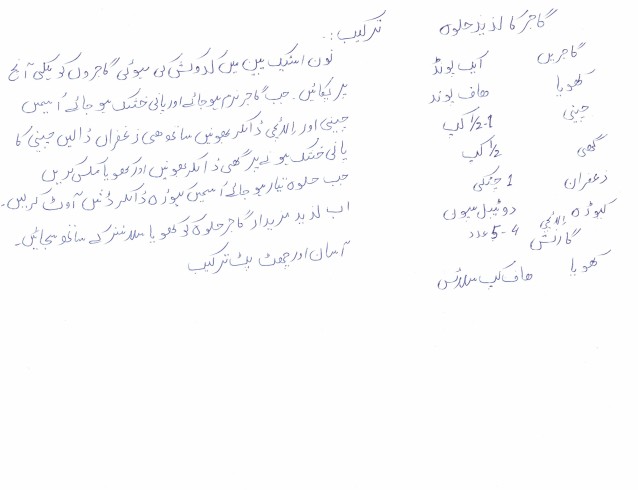 گاجر کا لذیذ حلوہ
گاجریں ایک پونڈ
کھویا ہاف پونڈ
چینی 1-1/2 کپ
گھی 1/2 کپ
زعفران 1 چٹکی
کیوڑہ دو ٹیبل سپون
الائچی 4-5 عدد
گارنش
کھویا ہاف کپ سلائس
ترکیب :.
نون اسٹیک پین میں کدوکش کی ہوئی گاجروں کو ہلکی آنچ
پر پکائیں۔ جب گاجر نرم ہو جائے اور پانی خشک ہو جائے اُسمیں
چینی اور الائچی ڈالکر بھونیں ساتھ ھی زعفراں ڈالیں چینی کا
پانی خشک ہونے پر گھی ڈالکر بھونیں اور کھویا مکس کریں
جب حلوہ تیار ہو جائے اُسمیں کیوڑہ ڈالکر ڈش آوٹ کریں۔
اب لذیذ مزیدار گاجر حلوہ کو کھویا سلائسز کے ساتھ سجائیں۔
آسان اور جھٹ پٹ ترکیب